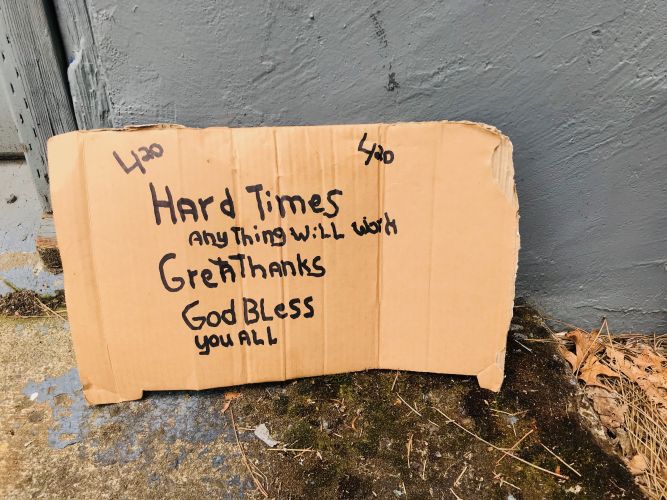 420 420
Hard Times
Anything Will Work
Great Thanks
God Bless
you ALL